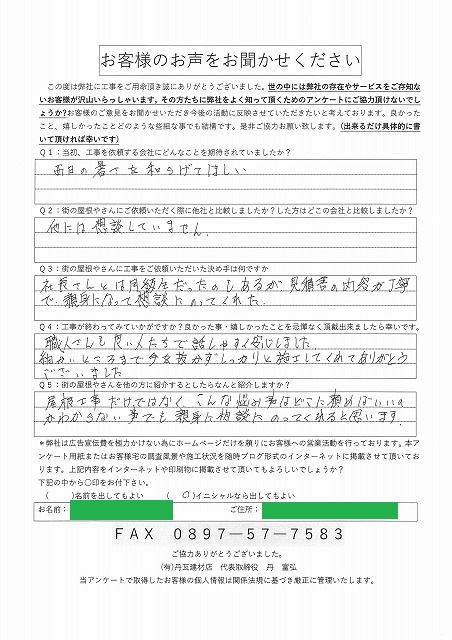 お客様のお声をお聞かせください
この度は弊社に工事をご用命頂き誠にありがとうございました。世の中には弊社の存在やサービスをご存知な
いお客様が沢山いらっしゃいます。その方たちに弊社をよく知って頂くためのアンケートにご協力頂けないでし
ょうか?お客様のご意見をお聞かせいただき今後の活動に反映させていただきたいと考えております。良かった
こと、嬉しかったことどのような些細な事でも結構です。是非ご協力お願い致します。(出来るだけ具体的に書
いて頂ければ幸いです)
Q1:当初、工事を依頼する会社にどんなことを期待されていましたか?
西日の暑さを和らげてほしい
Q2:街の屋根やさんにご依頼いただく際に他社と比較しましたか?した方はどこの会社と比較しましたか?
他には想談していません。
Q3:街の屋根やさんに工事をご依頼いただいた決め手は何ですか
社長さんとは同級生だったのもあるが見積書の内容が丁寧
で、親身になって想談にのってくれた。
Q4:工事が終わってみていかがですか?良かった事・嬉しかったことを忌憚なく頂戴出来ましたら幸いです。
職人さんも良い人たちで話しやすく安心しました
細かいところまで手を抜かずしっかりと施工してくれてありがとう
ございました
Q5:街の屋根やさんを他の方に紹介するとしたらなんと紹介しますか?
屋根工事だけではなく こんな悩み事はどこに頼めばいいの
かわからない事でも親身に相談にのってくれると思います。
*弊社は広告宣伝費を極力かけない為にホームページだけを頼りにお客様への営業活動を行っております。本ア
ンケート用紙またはお客様宅の調査風景や施工状況を随時ブログ形式のインターネットに掲載させて頂いてお
ります。上記内容をインターネットや印刷物に掲載させて頂いてもよろしいでしょうか?
下記の中から〇印をお付下さい。
( )名前を出してもよい ( 〇 )イニシャルなら出してもよい
お名前: ご住所:
FAX 0897-57-7583
ご協力ありがとうございました。
(有)丹瓦建材店 代表取締役 丹 富弘
当アンケートで取得したお客様の個人情報は関係法規に基づき厳正に管理いたします。